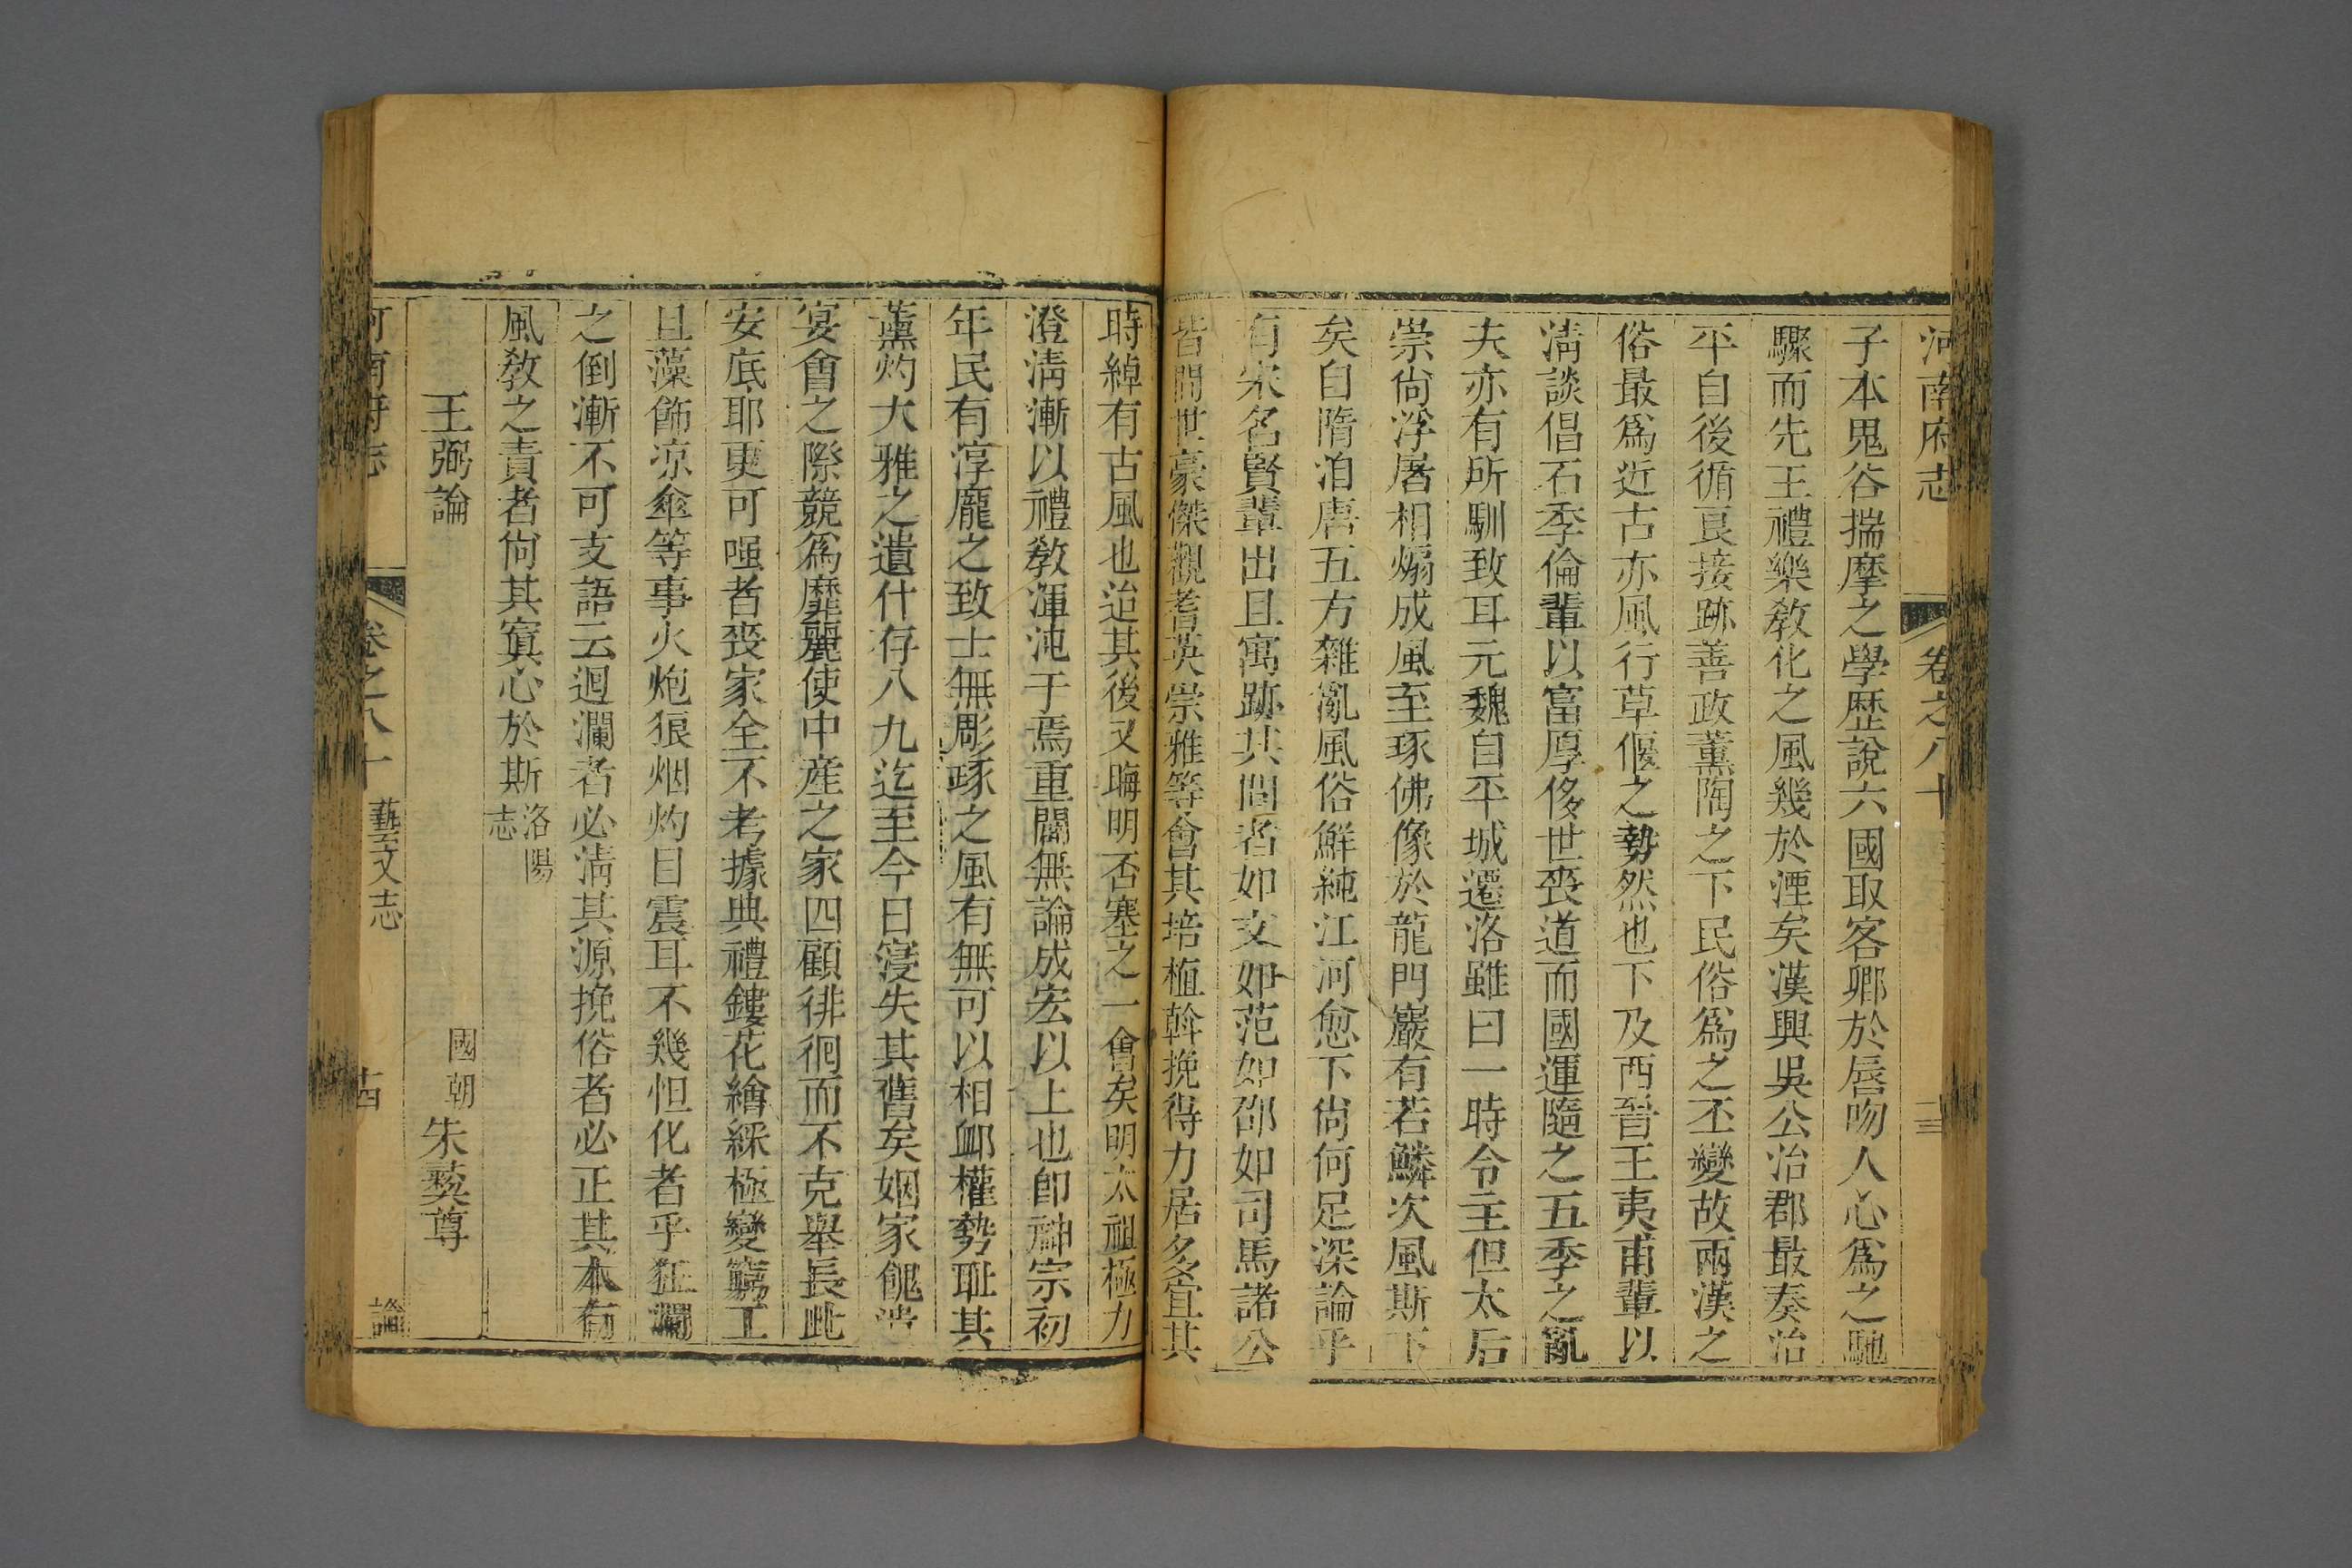 河南府志 卷之八十
子本鬼谷揣摩之學歷說六國取客卿於唇吻人心爲之馳
驟而先王禮樂敎化之風幾於湮矣漢興吳公治郡最奏治
平自後循良接跡善政薰陶之下民俗爲之丕變故兩漢之
俗最爲近古亦風行草偃之勢然也下及西晉王夷甫輩以
淸談倡石季倫輩以富厚侈世喪道而國運隨之五季之亂
夫亦有所馴致耳元魏自平城遷洛雖曰一時令主但太后
崇尙浮屠相煽成風至琢佛像於龍門巖有若鱗次風斯下
矣自隋洎唐五方雜亂風俗鮮純江河愈下尙何足深論乎
有宋名賢輩出且寓跡其間者如文如范如邵如司馬諸公
皆間世豪傑觀耆英崇雅等會其培植斡挽得力居多宜其
時綽有古風也迨其後又晦明否塞之一會矣明太祖極力
澄淸漸以禮敎渾沌于焉重闢無論成宏以上也卽神宗初
年民有淳龐之致士無彫琢之風有無可以相卹權勢耻其
薰灼大雅之遺什存八九迄至今日寖失其舊矣姻家餽
宴會之際競爲靡麗使中產之家四顧徘徊而不克舉長此
安底耶更可嗤者喪家全不考據典禮鏤花繪綵極變窮工
且藻飾凉傘等事火炮狼烟灼目震耳不幾怛化者乎狂瀾
之倒漸不可支語云迴瀾者必淸其源挽俗者必正其本有
風敎之責者尙其寘心於斯 洛陽志
王弼論 國朝 朱彝尊
河南府志 卷之八十 藝文志 論